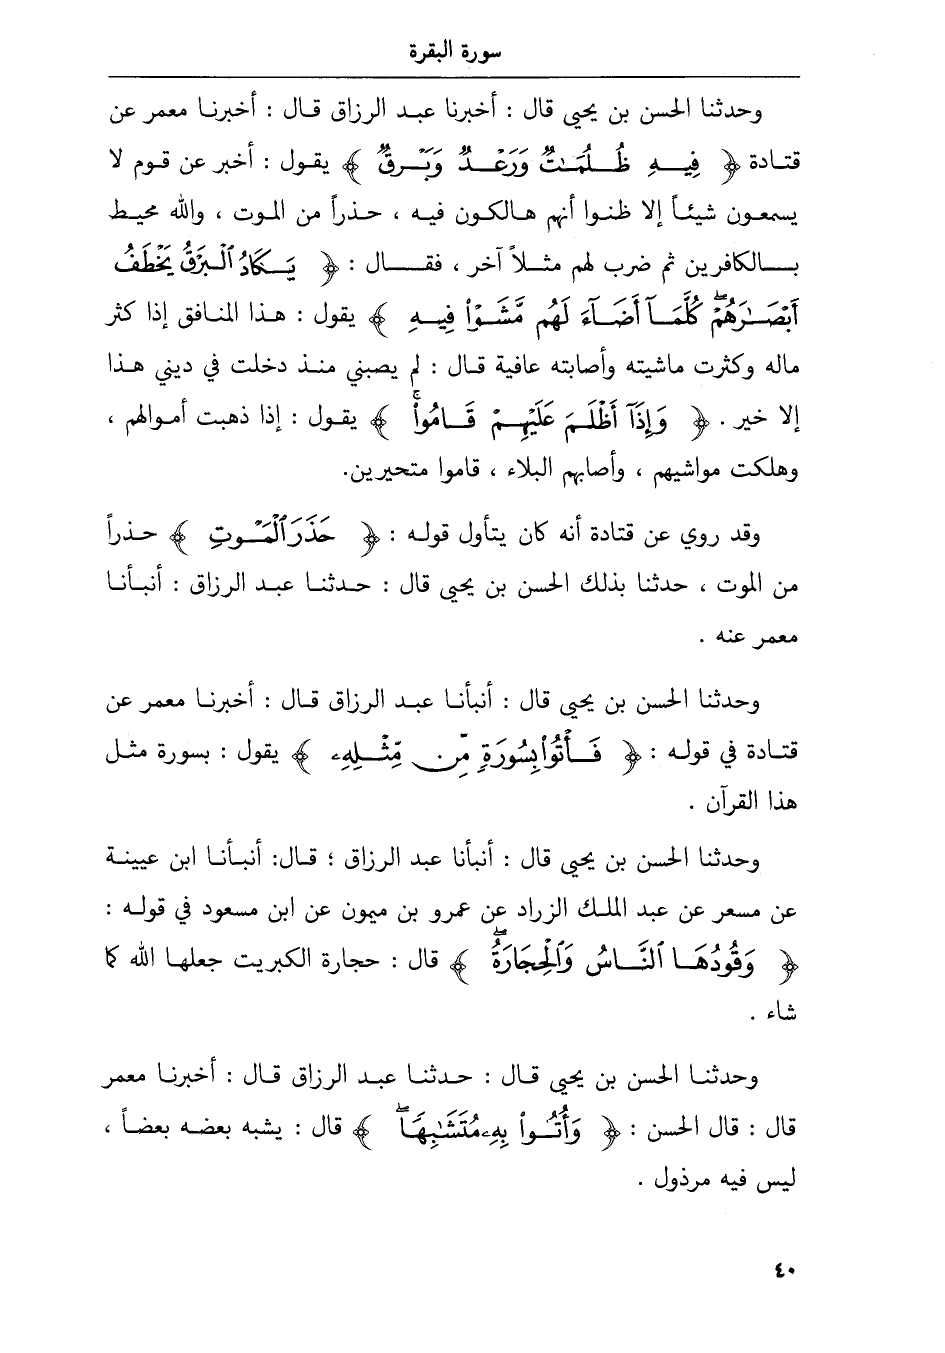 سورة البقرة
وحدثنا الحسن بن يحيى قال : أخبرنا عبد الرزاق قال : أخبرنا معمر عن
قتادة ﴿ فِيهِ ظُلُمَٰتٌ وَرَعْدٌ وَبَرْقٌ ﴾ يقول : أخبر عن قوم لا
يسمعون شيئاً إلا ظنوا أنهم هالكون فيه ، حذراً من الموت ، والله محيط
بالكافرين ثم ضرب لهم مثلاً آخر ، فقال : ﴿ يَكَادُ ٱلْبَرْقُ يَخْطَفُ
أَبْصَٰرَهُمْ ۖ كُلَّمَآ أَضَآءَ لَهُم مَّشَوْا۟ فِيهِ ﴾ يقول : هذا المنافق إذا كثر
ماله وكثرت ماشيته وأصابته عافية قال : لم يصبني منذ دخلت في ديني هذا
إلا خير . ﴿ وَإِذَآ أَظْلَمَ عَلَيْهِمْ قَامُوا۟ ۚ ﴾ يقول : إذا ذهبت أموالهم ،
وهلكت مواشيهم ، وأصابهم البلاء ، قاموا متحيرين.
وقد روي عن قتادة أنه كان يتأول قوله : ﴿ حَذَرَ ٱلْمَوْتِ ﴾ حذراً
من الموت ، حدثنا بذلك الحسن بن يحيى قال : حدثنا عبد الرزاق : أنبأنا
معمر عنه .
وحدثنا الحسن بن يحيى قال : أنبأنا عبد الرزاق قال : أخبرنا معمر عن
قتادة في قوله : ﴿ فَأْتُوا۟ بِسُورَةٍ مِّن مِّثْلِهِۦ ﴾ يقول : بسورة مثل
هذا القرآن .
وحدثنا الحسن بن يحيى قال : أنبأنا عبد الرزاق ؛ قال: أنبأنا ابن عيينة
عن مسعر عن عبد الملك الزراد عن عمرو بن ميمون عن ابن مسعود في قوله :
﴿ وَقُودُهَا ٱلنَّاسُ وَٱلْحِجَارَةُ ۖ ﴾ قال : حجارة الكبريت جعلها الله كما
شاء .
وحدثنا الحسن بن يحيى قال : حدثنا عبد الرزاق قال : أخبرنا معمر
قال : قال الحسن : ﴿ وَأُتُوا۟ بِهِۦ مُتَشَٰبِهًا ۖ ﴾ قال : يشبه بعضه بعضاً ،
ليس فيه مرذول .
٤٠